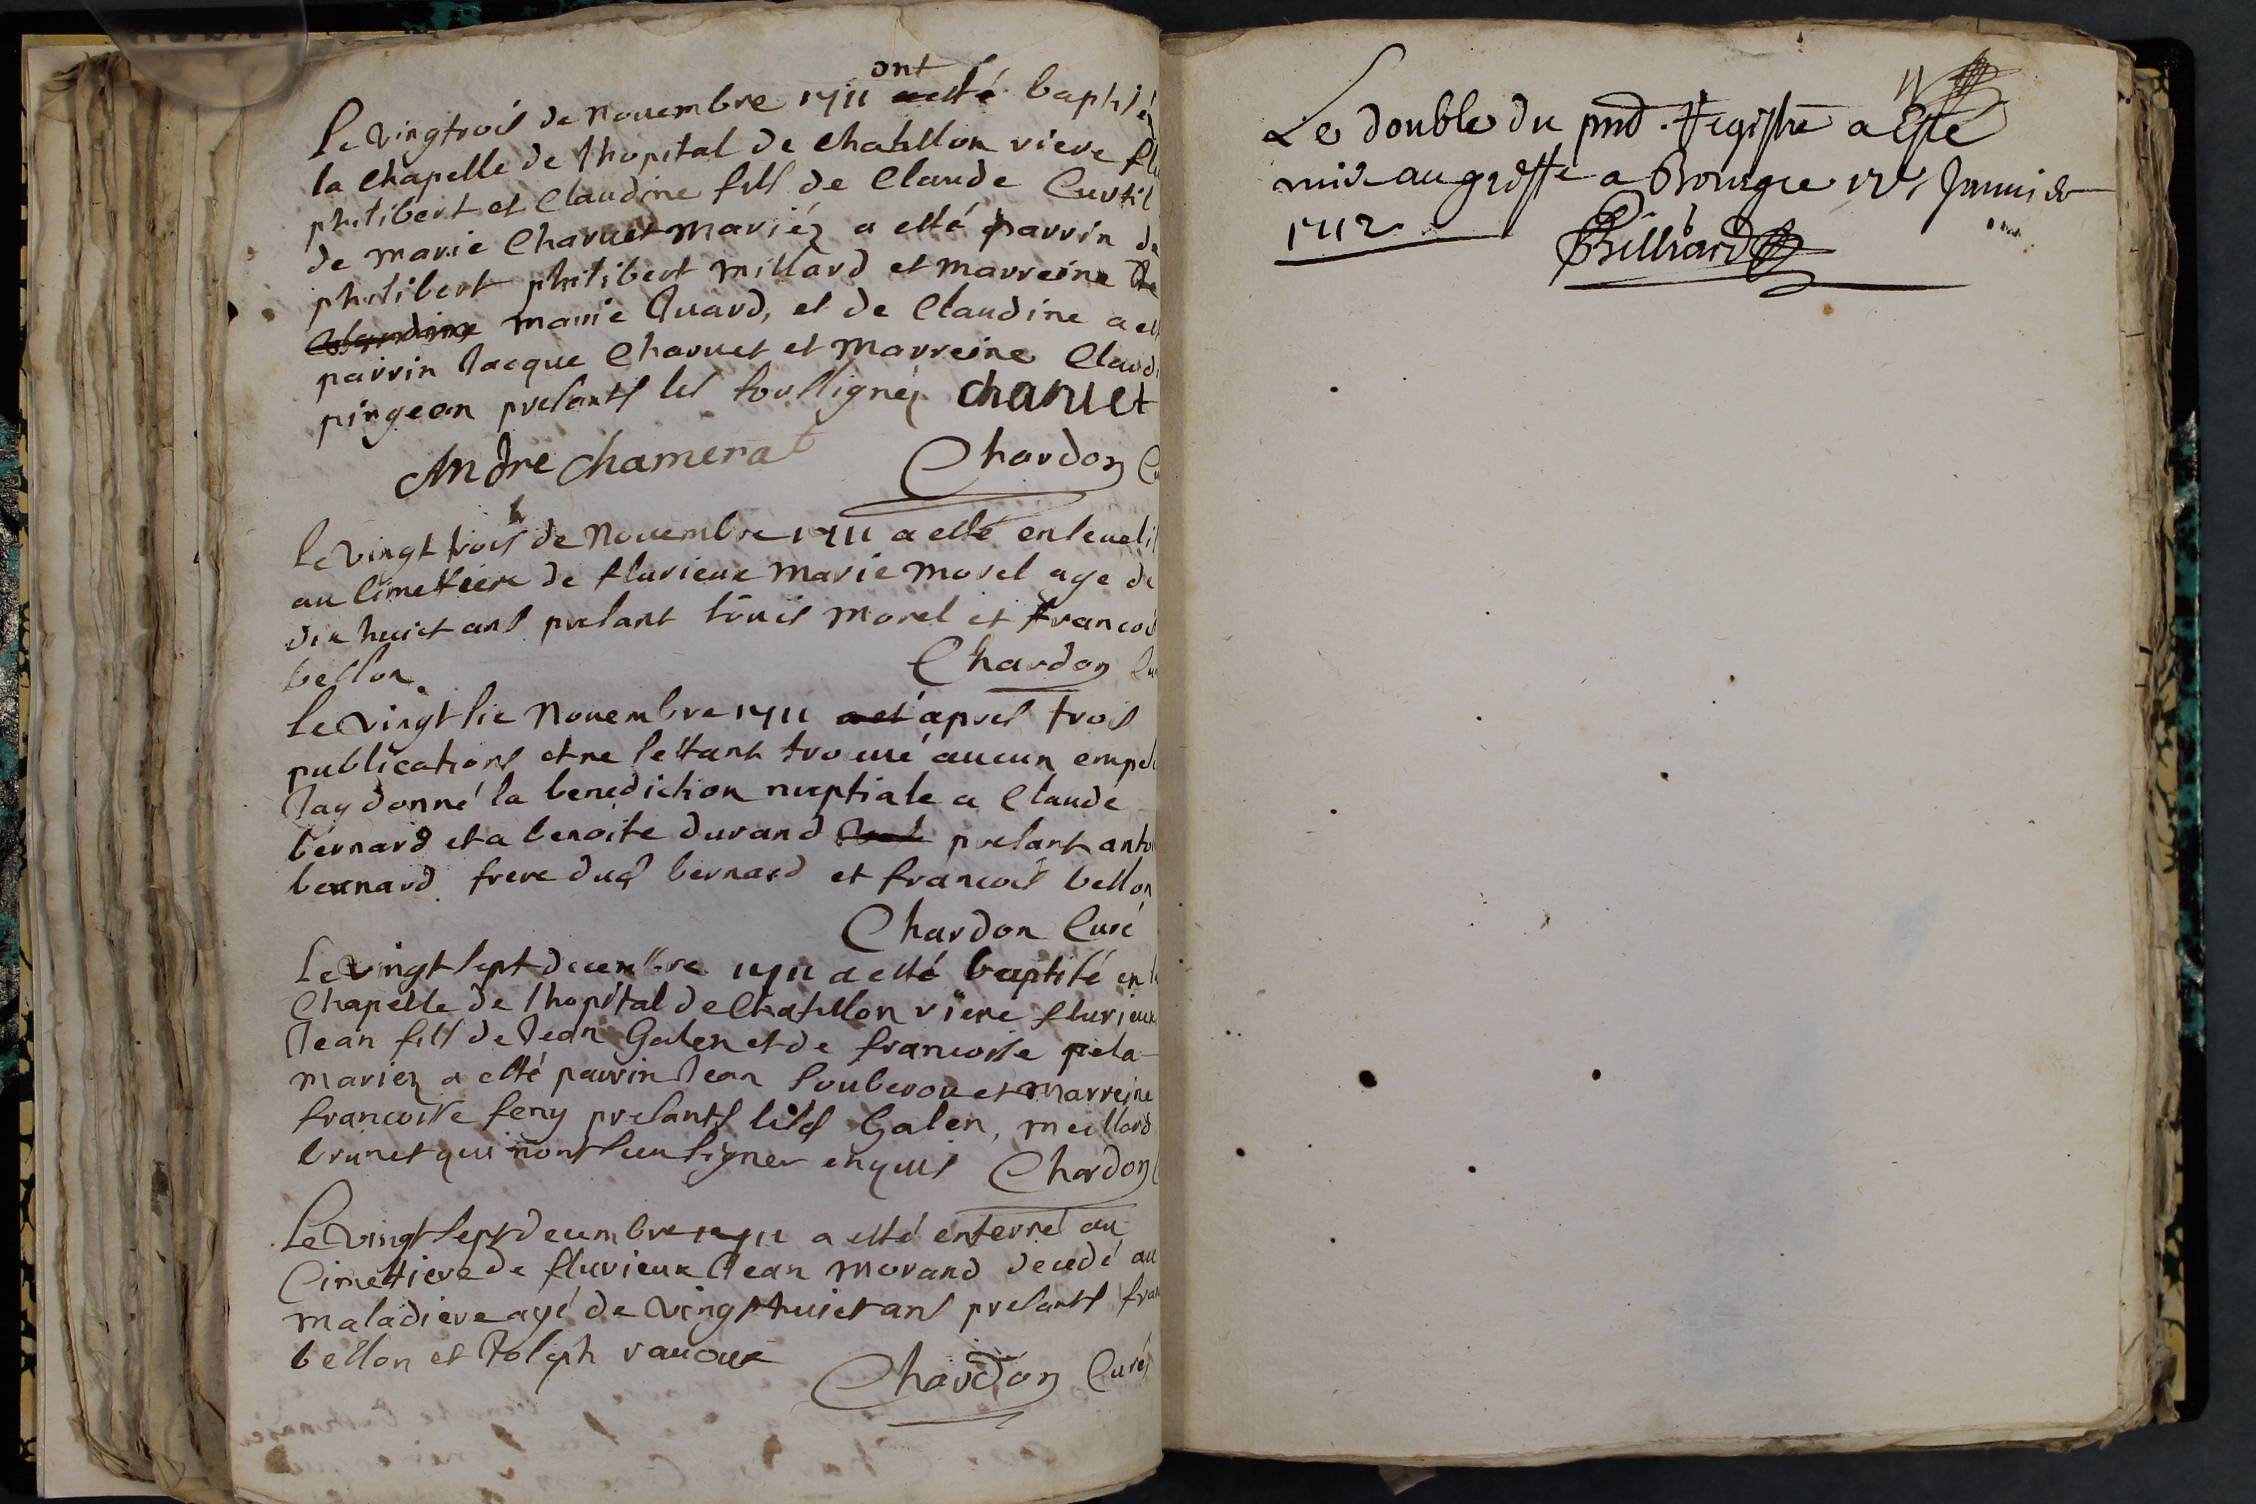 Le vingtrois de Nouembre 1711 ont esté baptisé en
la chapelle de lhopital de chatillon viere flu
philibert et Claudine fils de Claude Curtil
de marie Charuet mariéz a esté parrin de
philibert philibert millard et marreine
Claudine marie Juard, et de Claudine a est
parrin Jacque Charuet et Marreine Claudi
pingeon presants les soussignez charuet
Andre chamerat Chardon Cu
Le vingt trois de Nouembre 1711 a esté enseueli
au Cimettiere de flurieux Marie Morel age de
dix huict ans presant louis Morel et francois
bellon. Chardon Cu
Le vingt six Nouembre 1711 apres trois
publications et ne sestant trouué aucun empe
Jay donné la benediction nuptiale a Claude
bernard et a benoite durand presant anto
bernard frere dud bernard et francois bellon
Chardon Curé
Le vingt sept decembre 1711 a esté baptisé en l
Chapelle de lhopital de Chatillon viere flurieux
Jean fils de Jean Galen et de francoise pela-
mariez a esté parrin Jean Souberou et Marreine
francoise feny presants lesd Galen, meillard
brunet qui nont sceu signer enquis Chardon C
Le vingt sept decembre 1711 a esté enterré au
Cimettiere de flurieux Jean Morand decedé au
maladiere agé de vingt huict ans presants fran
bellon et Joseph vauoux Chardon Curé
Le double du pnt Registre a Esté
mis au greffe a Bourg ce 12e Januier
1712 Billiard